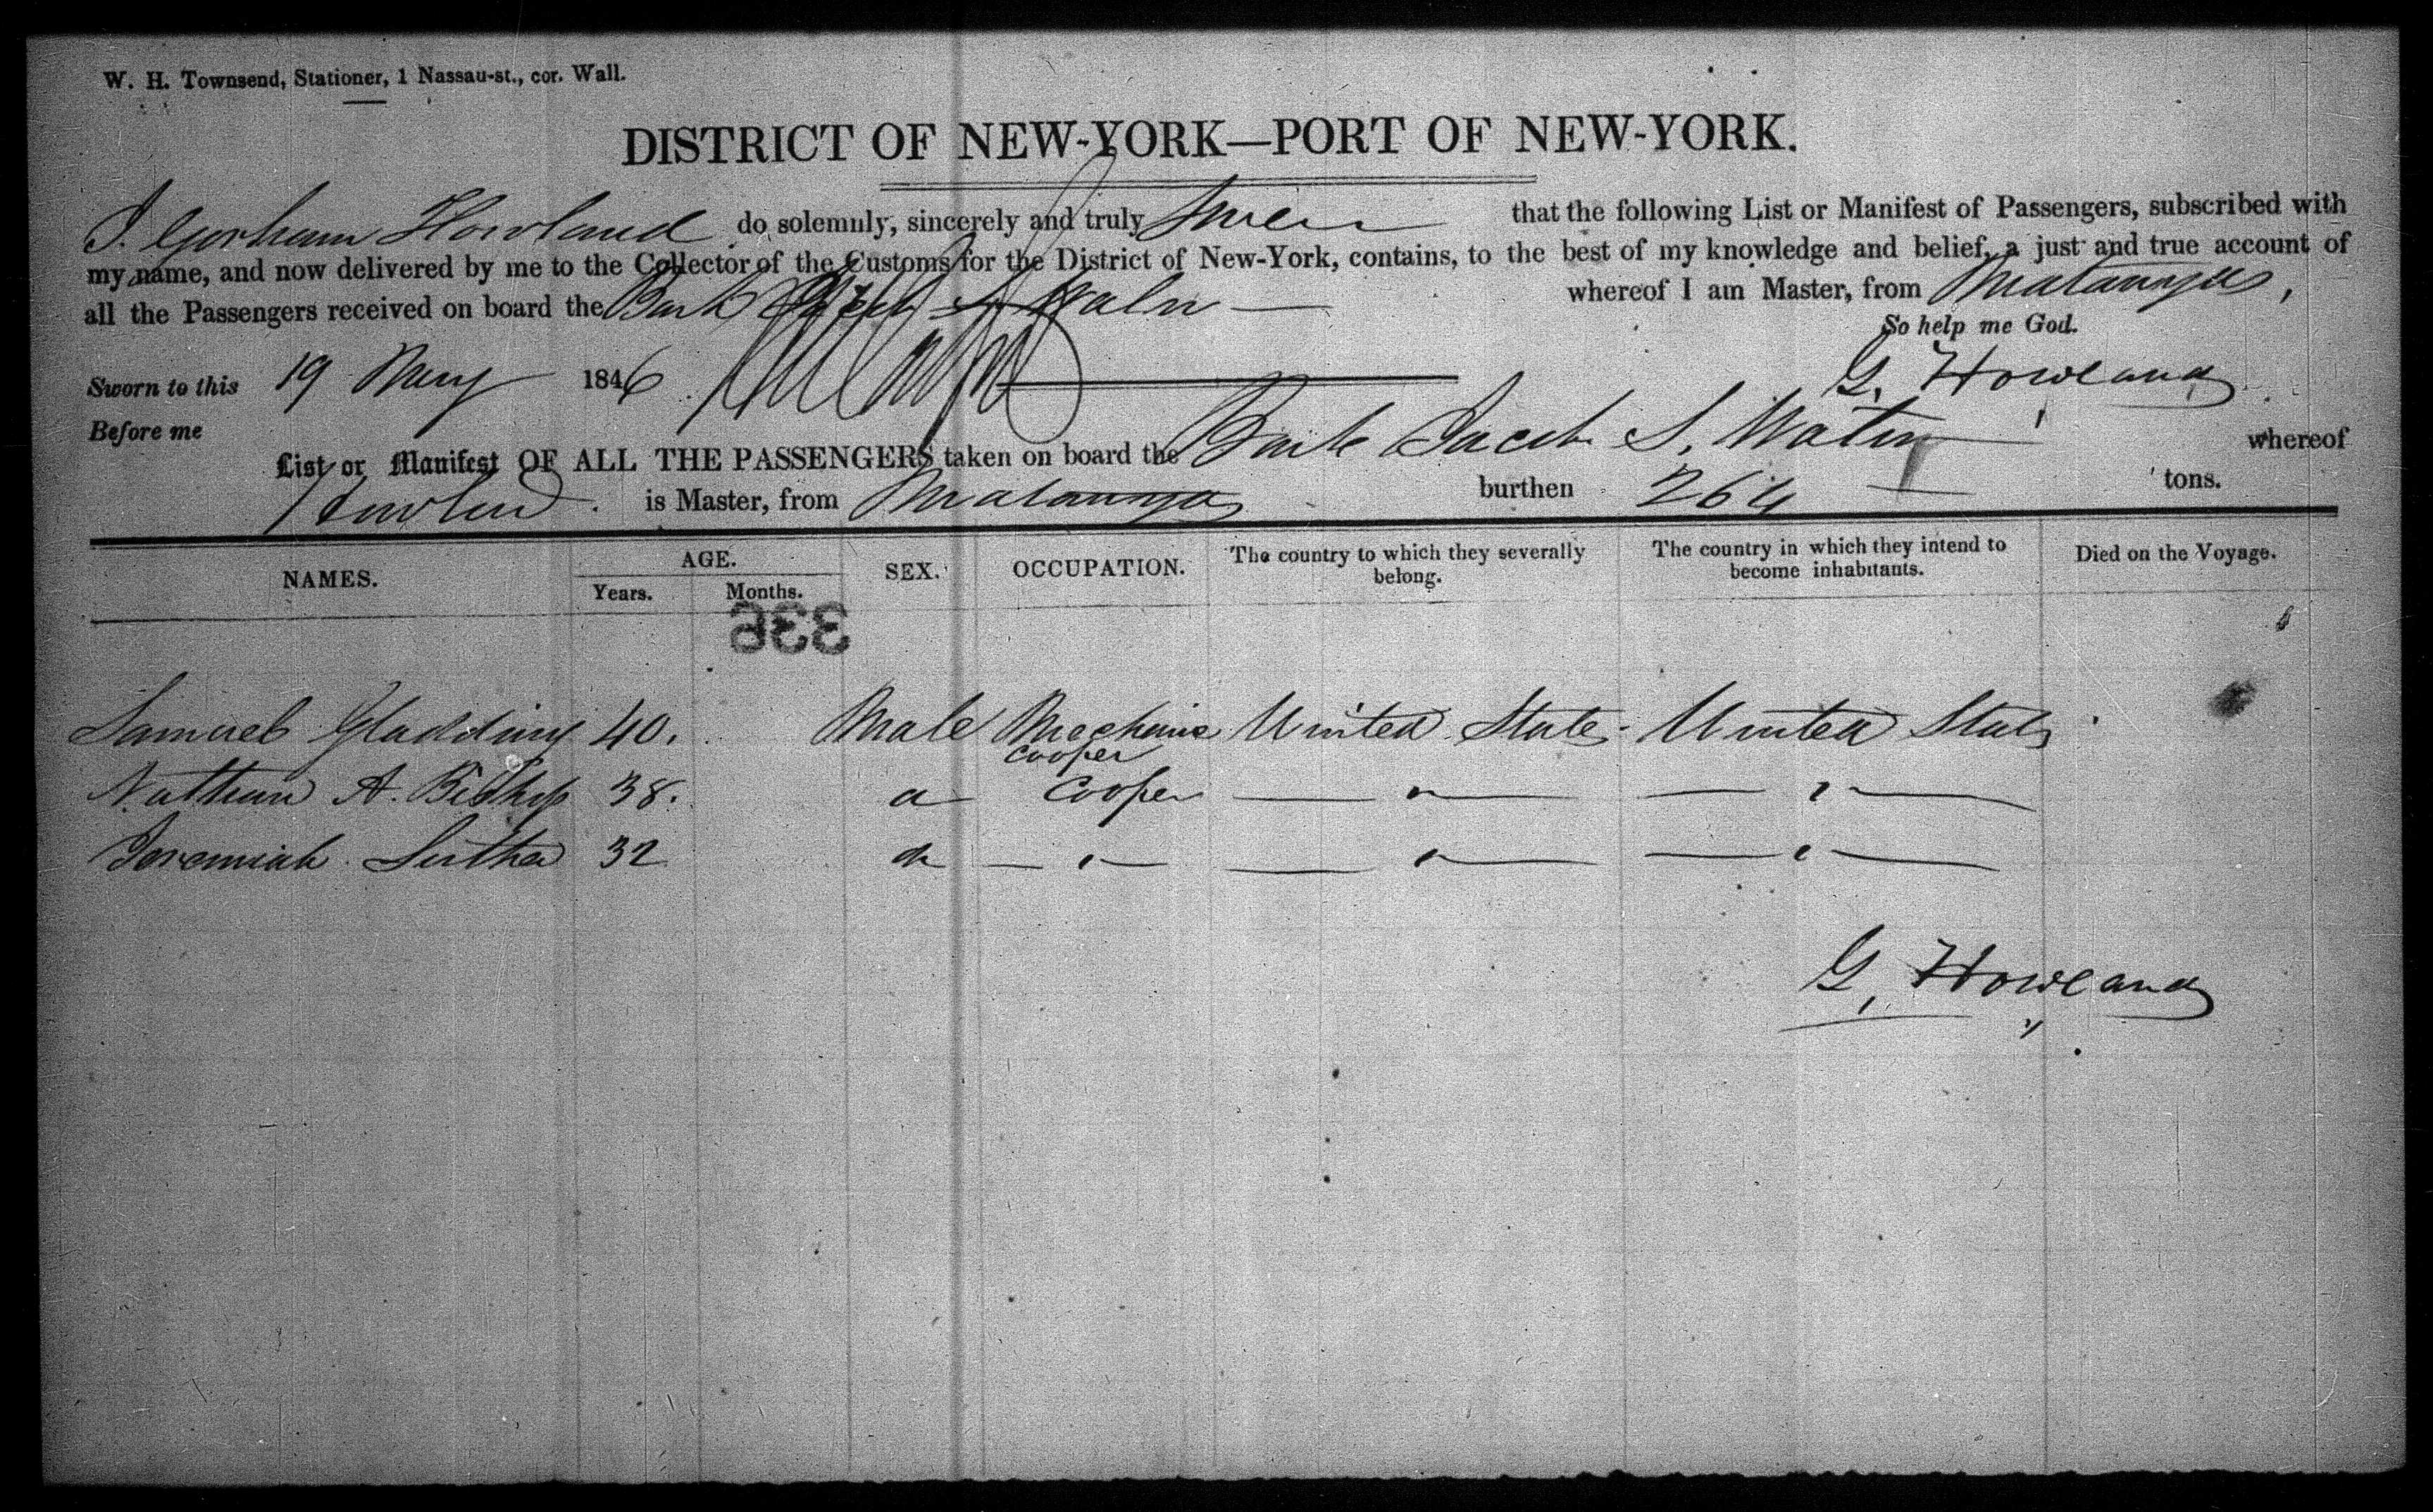 W. H. Townsend, Stationer, 1 Nassau-st., cor. Wall.
DISTRICT OF NEW-YORK—PORT OF NEW-YORK.
I. Gorham Howland do solemnly, sincerely and truly Swear that the following List or Manifest of Passengers, subscribed with
my name, and now delivered by me to the Collector of the Customs for the District of New-York, contains, to the best of my knowledge and belief, a just and true account of
all the Passengers received on board the Bark Jacob S Waln whereof I am Master, from Matanzas,
So help me God.
Sworn to this 19 May 1846 G. Howland
Before me
List or Manifest OF ALL THE PASSENGERS taken on board the Bark Jacob S. Waln whereof
Howland is Master, from Matanzas burthen 264 tons.
NAMES. AGE. SEX. OCCUPATION. The country to which they severally belong. The country in which they intend to become inhabitants. Died on the Voyage.
Years. Months.
336
Samuel Gladding 40. Male Mechanic United States United States
cooper
Nathan A. Bishop 38. do Cooper — " — — " —
Jeremiah Luther 32 do — " — — " — — " —
G. Howland